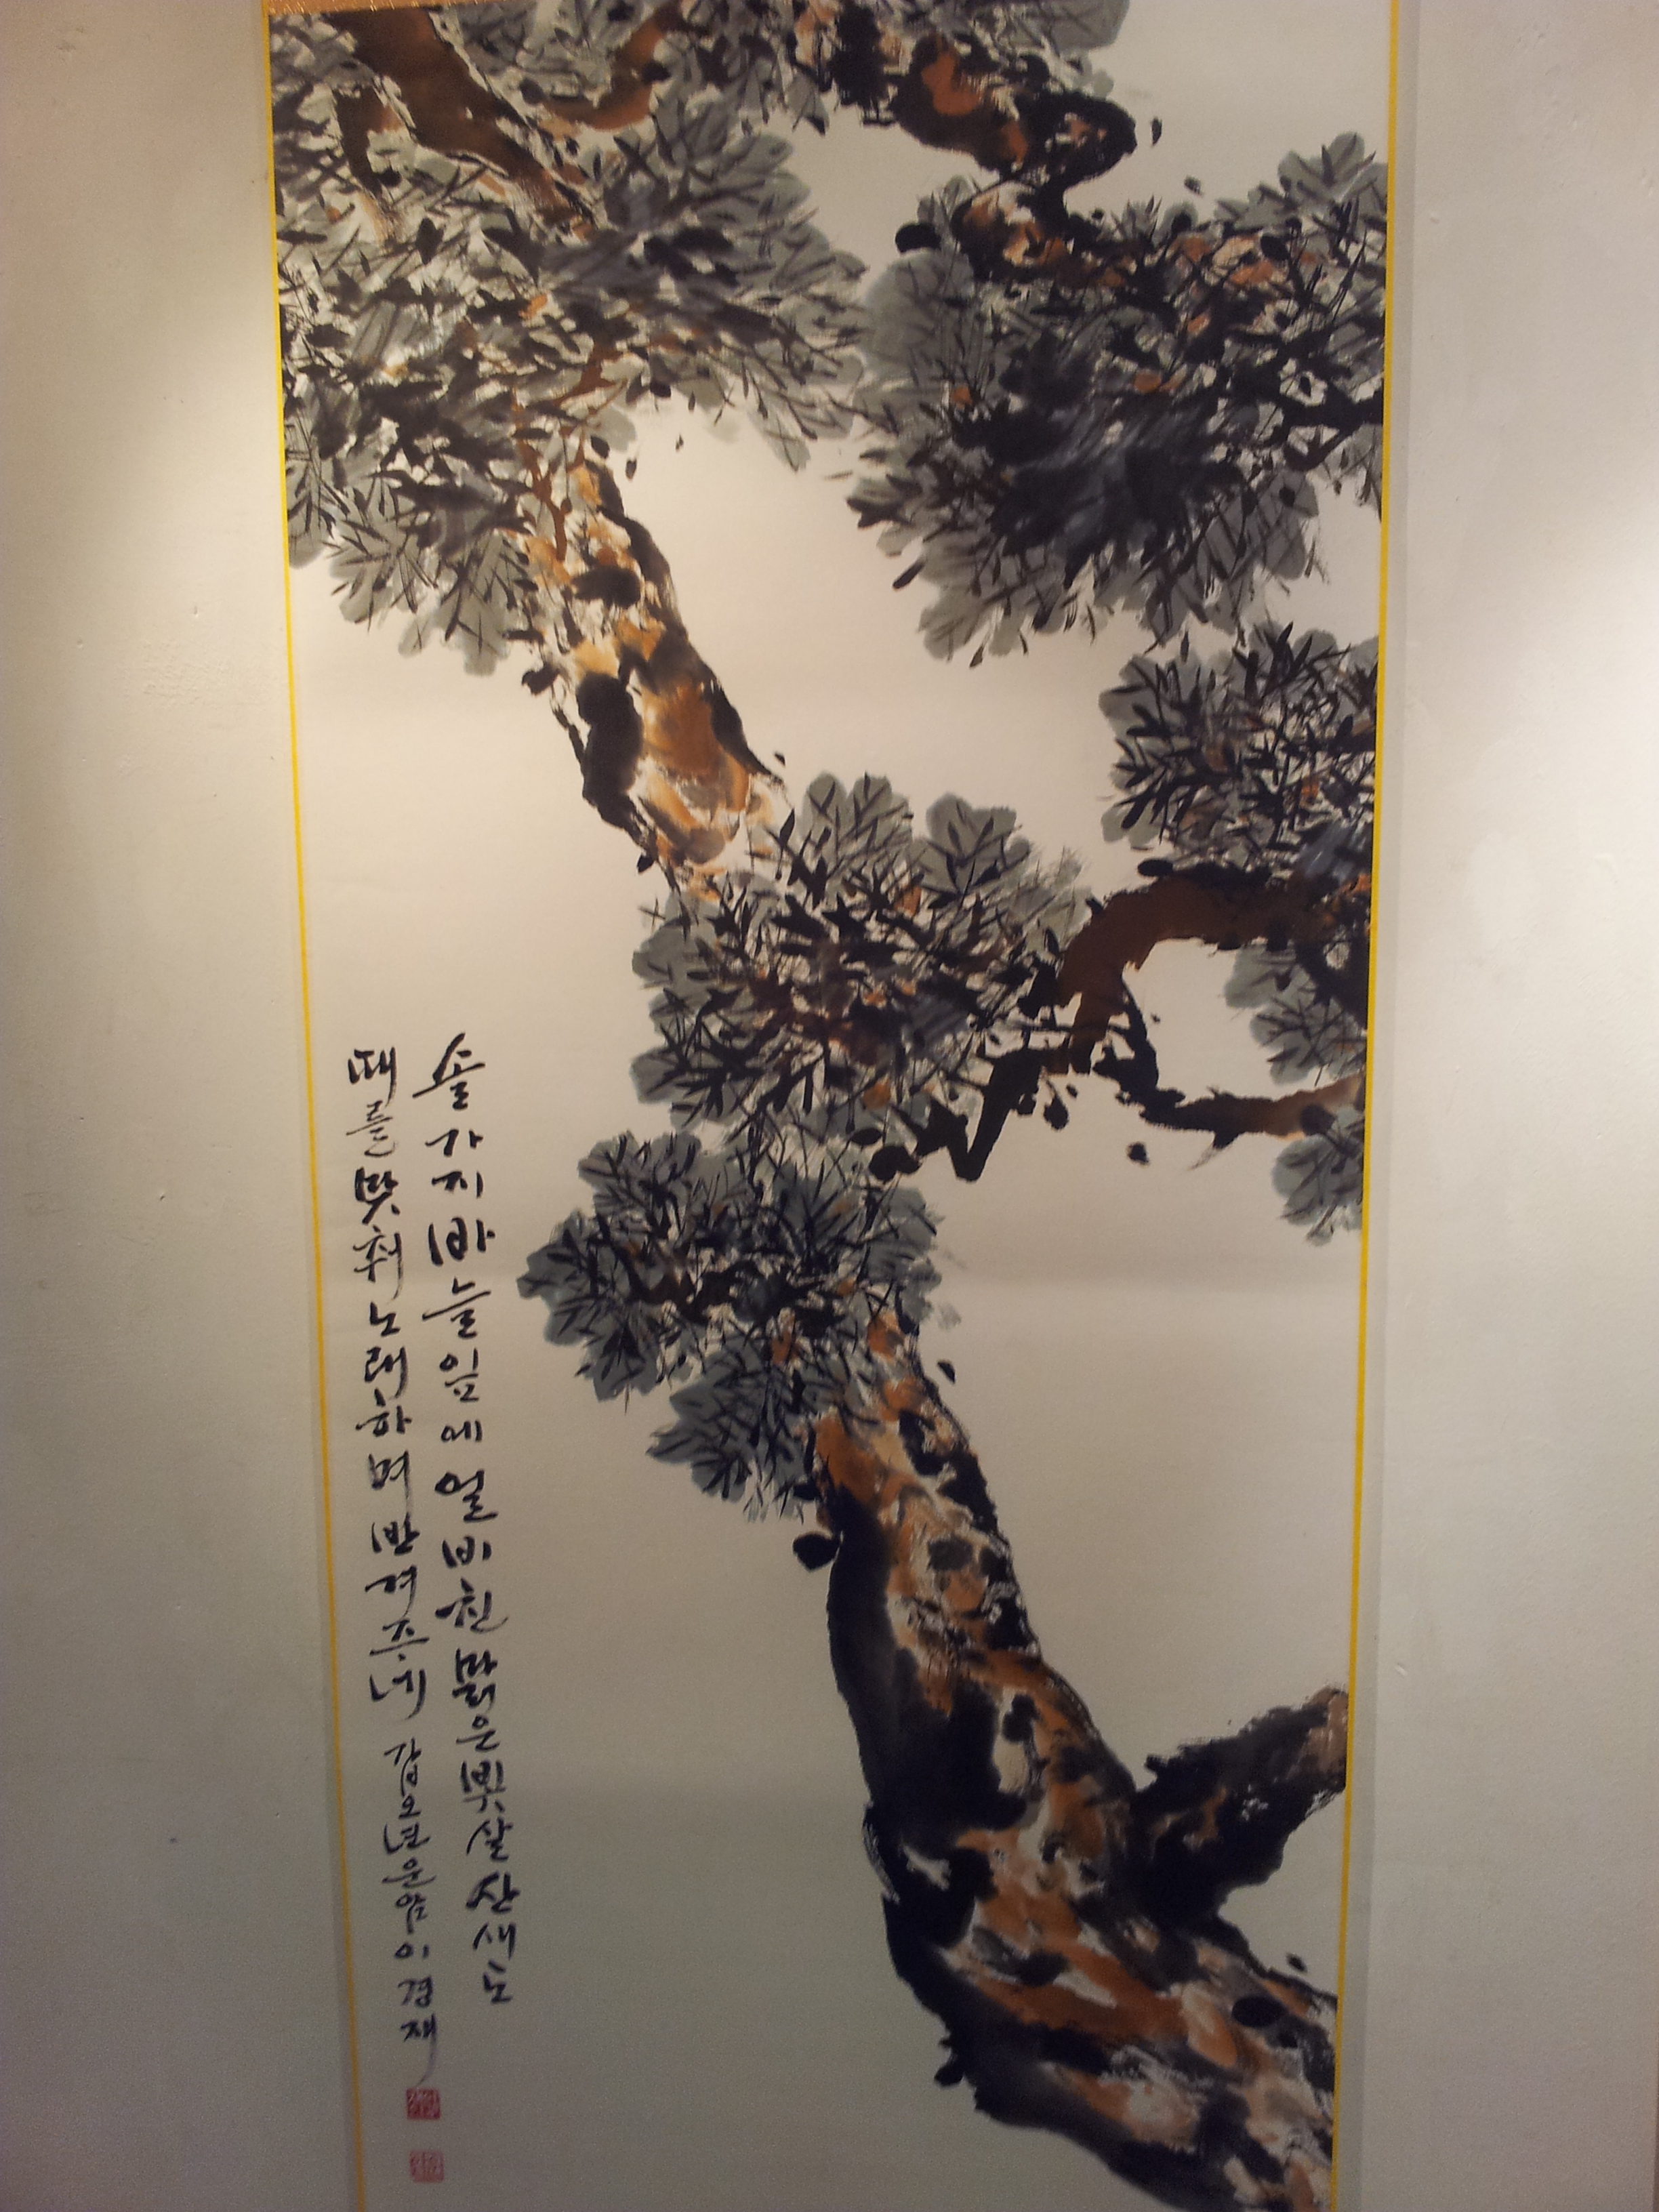 솔가지바늘잎에얼비친맑은빛살산새도
때를맞춰노래하며반겨주네 갑오년운암이경재